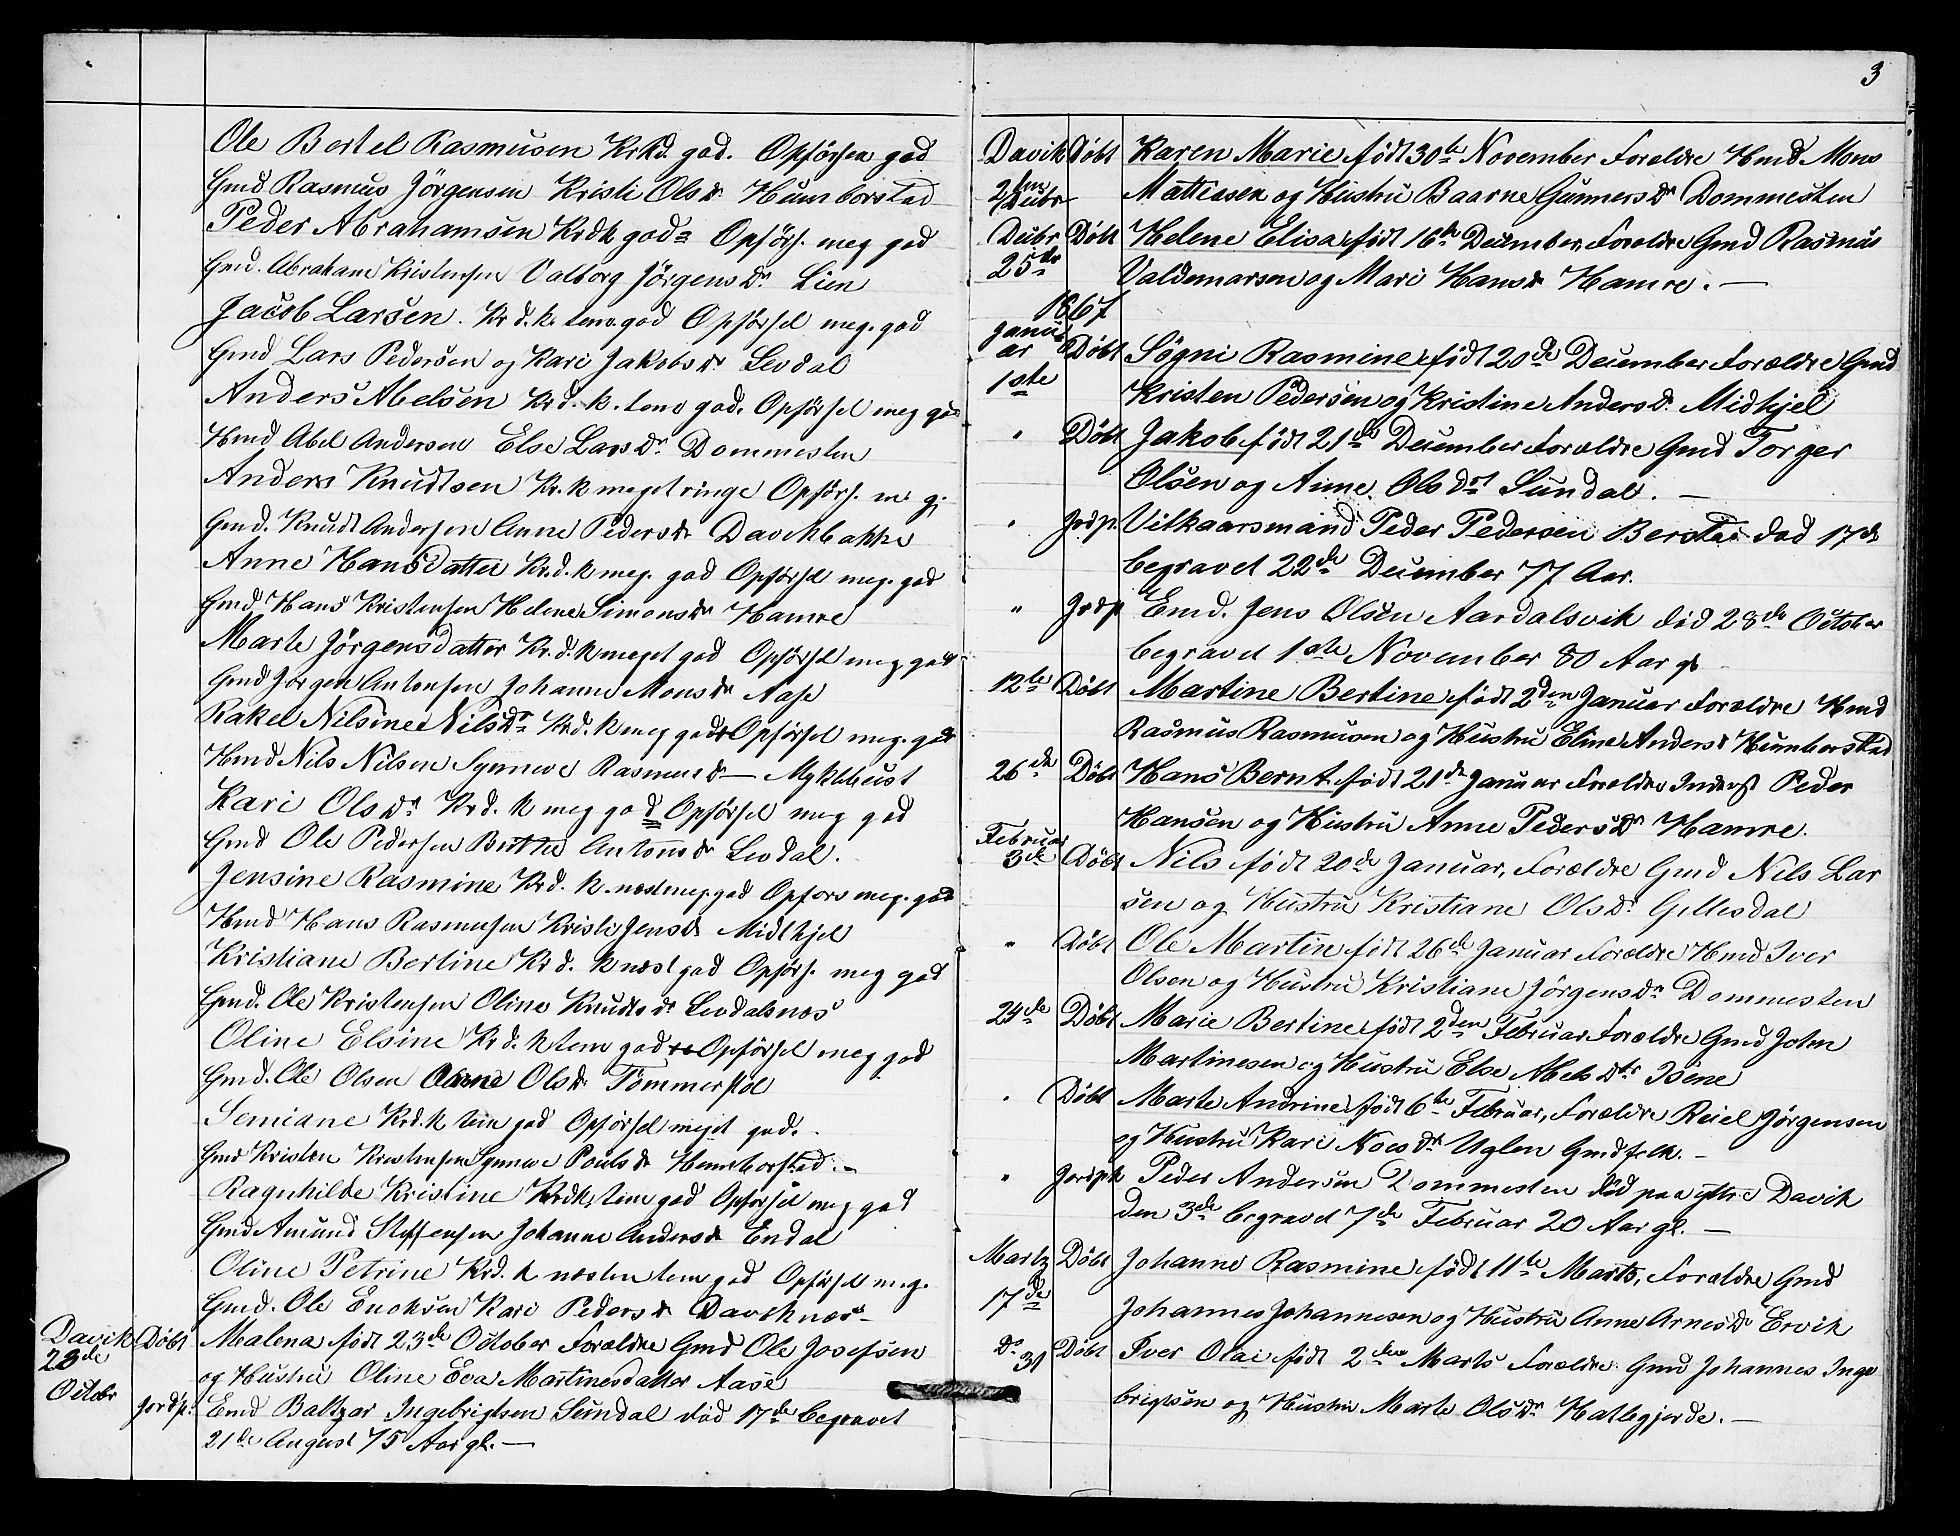 Ole Bertel Rasmusen Krkd. god. Opförsen god
Gmd Rasmus Jörgensen Kristi Olsdr Humborstad
Peder Abrahamsen Krdk god Opförs. meg god
Gmd. Abraham Kristensen Valborg Jörgensdr. Lien
Jacob Larsen. Krd.k. tem. god Opförsel meg. god
Gmd Lars Pedersen og Kari Jakobsdr Levdal
Anders Abelsen Krd.k. tem god. Opförsel meg god
Hmd Abel Andersen Else Larsdr. Dommesten
Anders Knudtsen Kr.k meget ringe Opförs. m g.
Gmd. Knudt Andersen Anne Pedersdr Davikbakke
Anne Hansdatter Kr.d.k meg. god Opförsel meg. god
Gmd Hans Kristensen Helene Simonsdr Hamre
Marte Jörgensdatter Kr.d.k meget god Opförsel meg god
Gmd Jörgen Antonsen Johanne Monsdr Aase
Rakel Nilsine Nilsdr Krd.k meg god Opförsel meg. god
Hmd Nils Nilsen Synneve Rasmusdr — Myklebust
Kari Olsdr Krd. k meg god Opförsel meg god
Gmd Ole Pedersen Britta Antonsdr Levdal.
Jensine Rasmine Krd. k. næst meg. god Opfors meg. god
Hmd Hans Rasmusen Kristi Jensdr Midthjel
Kristiane Bertine Krd. k næst god Opförs. meg god
Gmd. Ole Kristensen Oline Knudtsdr Levdalsnes
Oline Elsine Kr.d.k tem god Opförsel meg god
Gmd. Ole Olsen Anne Olsdr Tömmerstöl
Semiane Krd.k tem god Opförsel meget god.
Gmd Kristen Kristensen Synneve Poulsdr Humborstad.-
Ragnhilde Kristine Krdk tem god Opförsel meg god
Gmd Amund Steffensen Johanne Andersdr Endal
Oline Petrine Krd. k næsten tem god Opförsel meg.
Gmd. Ole Enoksen Kari Pedersdr Daviknes
Davik 23de Octobr Döbt Malena födt 23de October Forældre Gmd Ole Josefsen
og Hustru Oline Eva Martinesdatter Aase
Jordp. Emd Baltzar Ingebrigtsen Sundal död 17de begravet
21de August 75 Aar gl.—
3
Davik 2den Decbr Döbt Karen Marie födt 30te November Forældre Hmd Mons
Mattiesen og Hustru Baarne Gunnersdr Dommesten
Decbr 25de Döbt Helene Elisa födt 16de December, Forældre Gmd Rasmus
Valdemarsen og Mari Hansdr Hamre. —
1867
Januar 1ste Döbt Sögni Rasmine födt 20de December Forældre Gmd
Kristen Pedersen og Kristine Andersdr. Midhjel
" Döbt Jakob födt 21de December Forældre Gmd Torger
Olsen og Anne Olsdr Sundal. —
" Jrdp. Vilkaarsmand Peder Pedersen Berstad död 17de
begravet 22de December 77 Aar.
" Jrdp Emd. Jens Olsen Aardalsvik död 28de October
begravet 1ste November 80 Aar gl
12te Döbt Martine Bertine födt 2den Januar Forældre Hmd
Rasmus Rasmusen og Hustru Eline Andersd Humborstad
26de Döbt Hans Bernt födt 21de Januar Forældre Inderst Peder
Hansen og Hustru Anne Pedersdr Hamre.
Februar 3de Döbt Nils födt 20de Januar, Forældre Gmd Nils Lar
sen og Hustru Kristiane Olsdr. Gillesdal
" Döbt Ole Martin födt 26de Januar Forældre Hmd Iver
Olsen og Hustru Kristiane Jörgensdr Dommesten
24de Döbt Marie Bertine födt 2den Februar Forældre Gmd John
Martinesen og Hustru Else Abelsdtr Isene
" Döbt Marte Andrine födt 6te Februar, Forældre Reiel Jörgensen
og Hustru Kari Noesdr Uglen Gmdfolk. —
" Jordpk Peder Andersen Dommesten död paa ytre Davik
den 3de begravet 7de Februar 20 Aar gl. —
Martz 17de Döbt Johanne Rasmine födt 11te Marts, Forældre Gmd
Johannes Johannesen og Hustru Anne Arnesdr Ervik
Do 31 Döbt Iver Olai födt 2den Marts Forældre Gmd Johannes Inge
brigtsen og Hustru Marte Olsdr Hatlegjerde. —